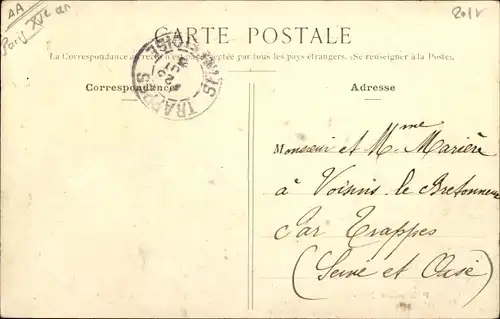 AA
Paris XVe ar
2011
CARTE POSTALE
La Correspondance au recto n'est pas acceptée par tous les pays étrangers. (Se renseigner à la Poste).
TRAPPES
Correspondance
Adresse
Monsieur et Mme Marière
à Voisins le Bretonneux
Par Trappes
(Seine et Oise)